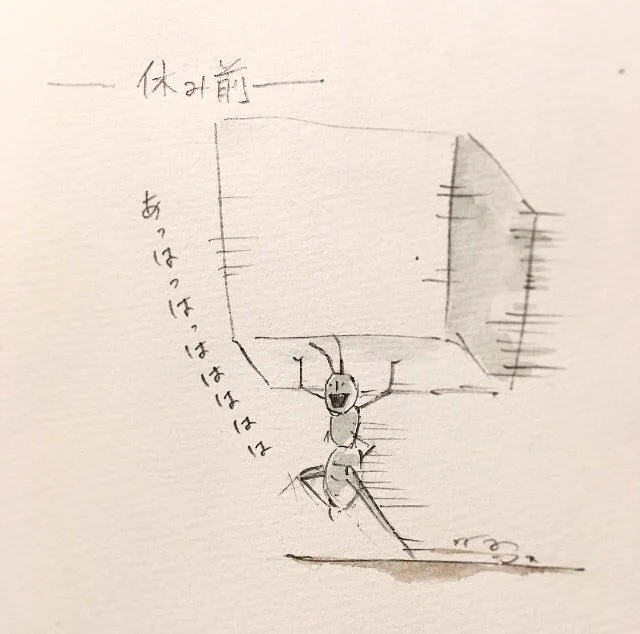 休み前
あっはっはっはははは